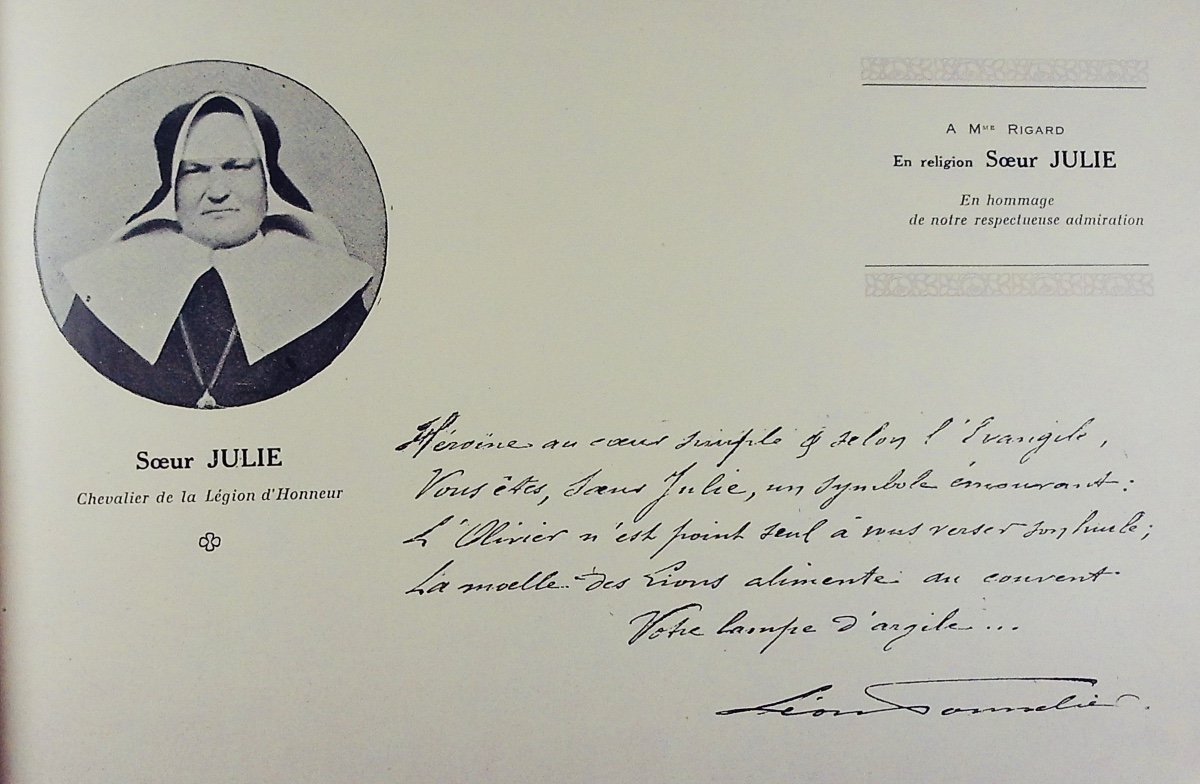 Sœur JULIE
Chevalier de la Légion d'Honneur
A Mme RIGARD
En religion Sœur JULIE
En hommage
de notre respectueuse admiration
Héroïne au cœur simple & selon l'Evangile,
Vous êtes, Sœur Julie, un symbole émouvant:
L'Olivier n'est point seul à vous verser son huile;
La moelle des Lions alimente au couvent
Votre lampe d'argile...
Léon Tonnelier